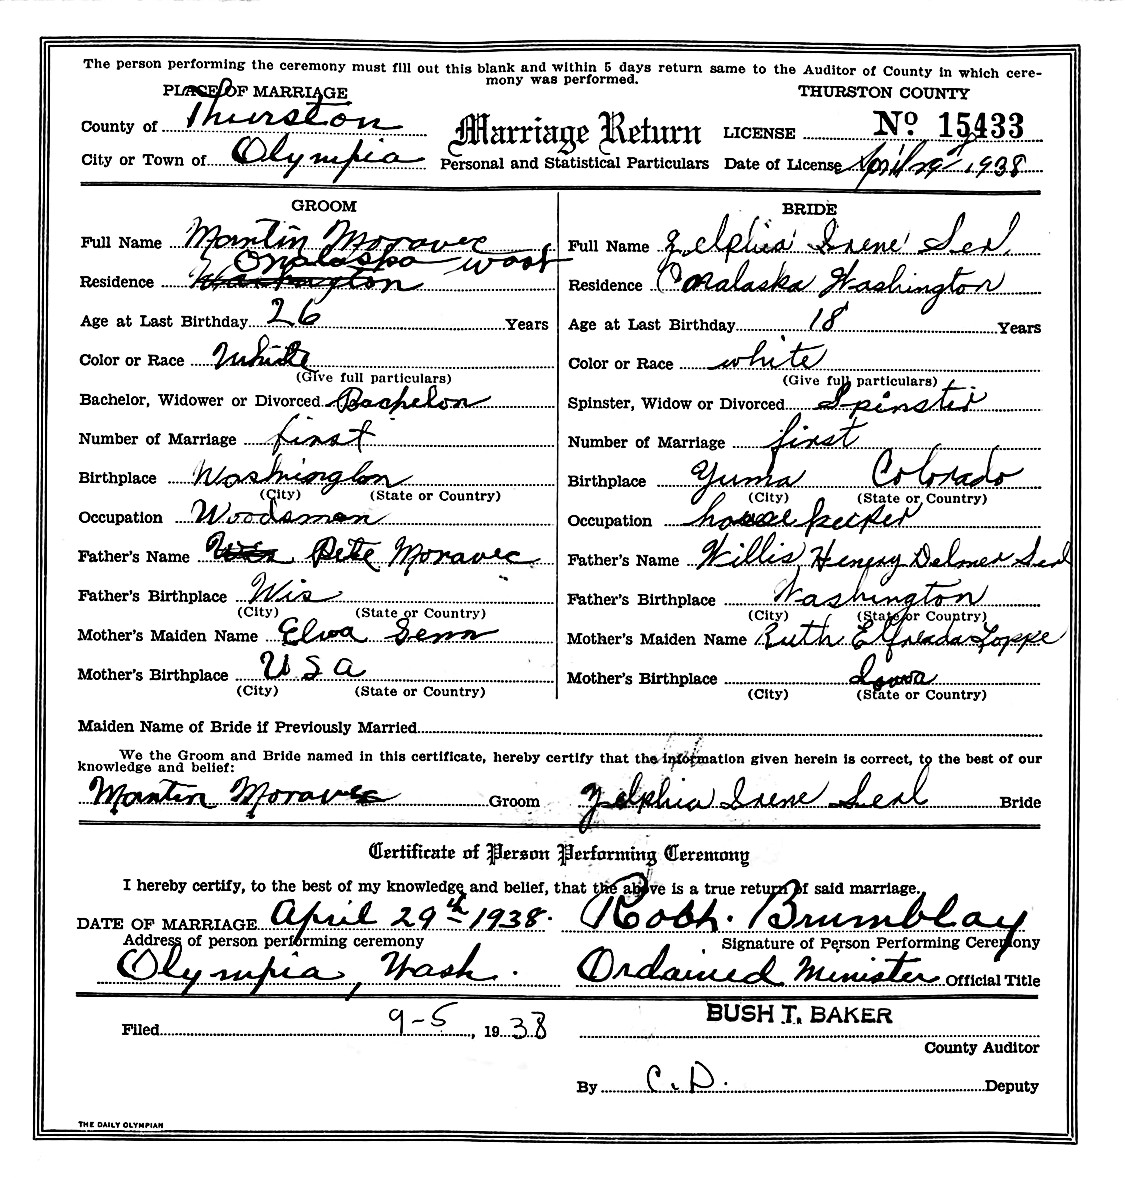 The person performing the ceremony must fill out this blank and within 5 days return same to the Auditor of County in which cere-
mony was performed.
PLACE OF MARRIAGE
THURSTON COUNTY
County of Thurston
Marriage Return
LICENSE No 15433
City or Town of Olympia
Personal and Statistical Particulars
Date of License April 29th 1938
GROOM
Full Name Martin Moravec
Residence Onalaska Wash
Washington
Age at Last Birthday 26 Years
Color or Race White
(Give full particulars)
Bachelor, Widower or Divorced Bachelor
Number of Marriage first
Birthplace Washington
(City) (State or Country)
Occupation Woodsman
Father's Name Wis Pete Moravec
Father's Birthplace Wis
(City) (State or Country)
Mother's Maiden Name Elva Senn
Mother's Birthplace U S A
(City) (State or Country)
BRIDE
Full Name Zelphia Irene Seal
Residence Onalaska Washington
Age at Last Birthday 18 Years
Color or Race white
(Give full particulars)
Spinster, Widow or Divorced Spinster
Number of Marriage first
Birthplace Yuma Colorado
(City) (State or Country)
Occupation housekeeper
Father's Name Willis Henry Delmer Seal
Father's Birthplace Washington
(City) (State or Country)
Mother's Maiden Name Ruth Elfreada Toppe
Mother's Birthplace Iowa
(City) (State or Country)
Maiden Name of Bride if Previously Married
We the Groom and Bride named in this certificate, hereby certify that the information given herein is correct, to the best of our
knowledge and belief:
Martin Moravec Groom Zelphia Irene Seal Bride
Certificate of Person Performing Ceremony
I hereby certify, to the best of my knowledge and belief, that the above is a true return of said marriage.
DATE OF MARRIAGE April 29th 1938. Robt. Brumblay
Address of person performing ceremony Signature of Person Performing Ceremony
Olympia, Wash. Ordained Minister Official Title
BUSH T. BAKER
Filed 9-5, 1938
County Auditor
By C. D. Deputy
THE DAILY OLYMPIAN